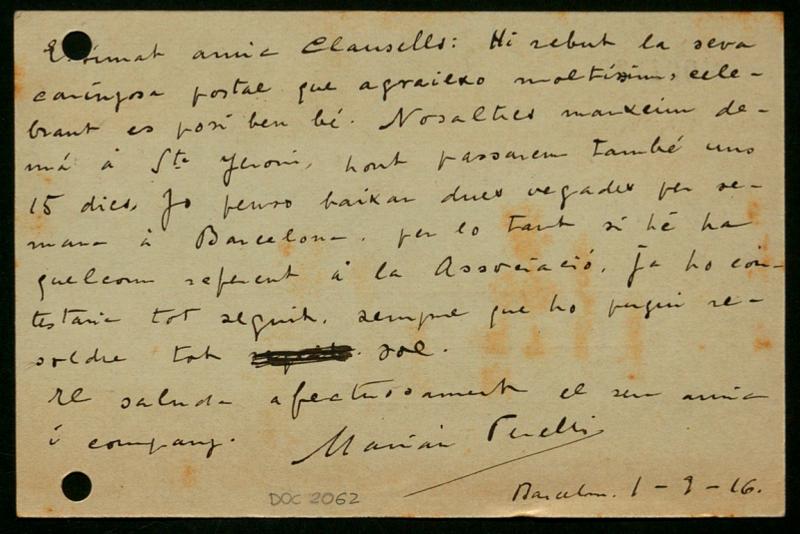 Estimat amic Clausells: Hi rebut la seva
carinyosa postal que agraeixo moltíssim, cele-
brant es posi ben bé. Nosaltres marxeim de-
má á Sta Jeroni, hont passarem també uns
15 dies. Jo penso baixar dues vegades per se-
mana á Barcelona. per lo tant si hé ha
quelcom referent á la Associació, ja ho con-
testaria tot seguit, sempre que ho pugui re-
soldre tot sol.
El saluda afectuosament el seu amic
i company. Marián Perelló
Barcelona. 1-9-16.
DOC 2062